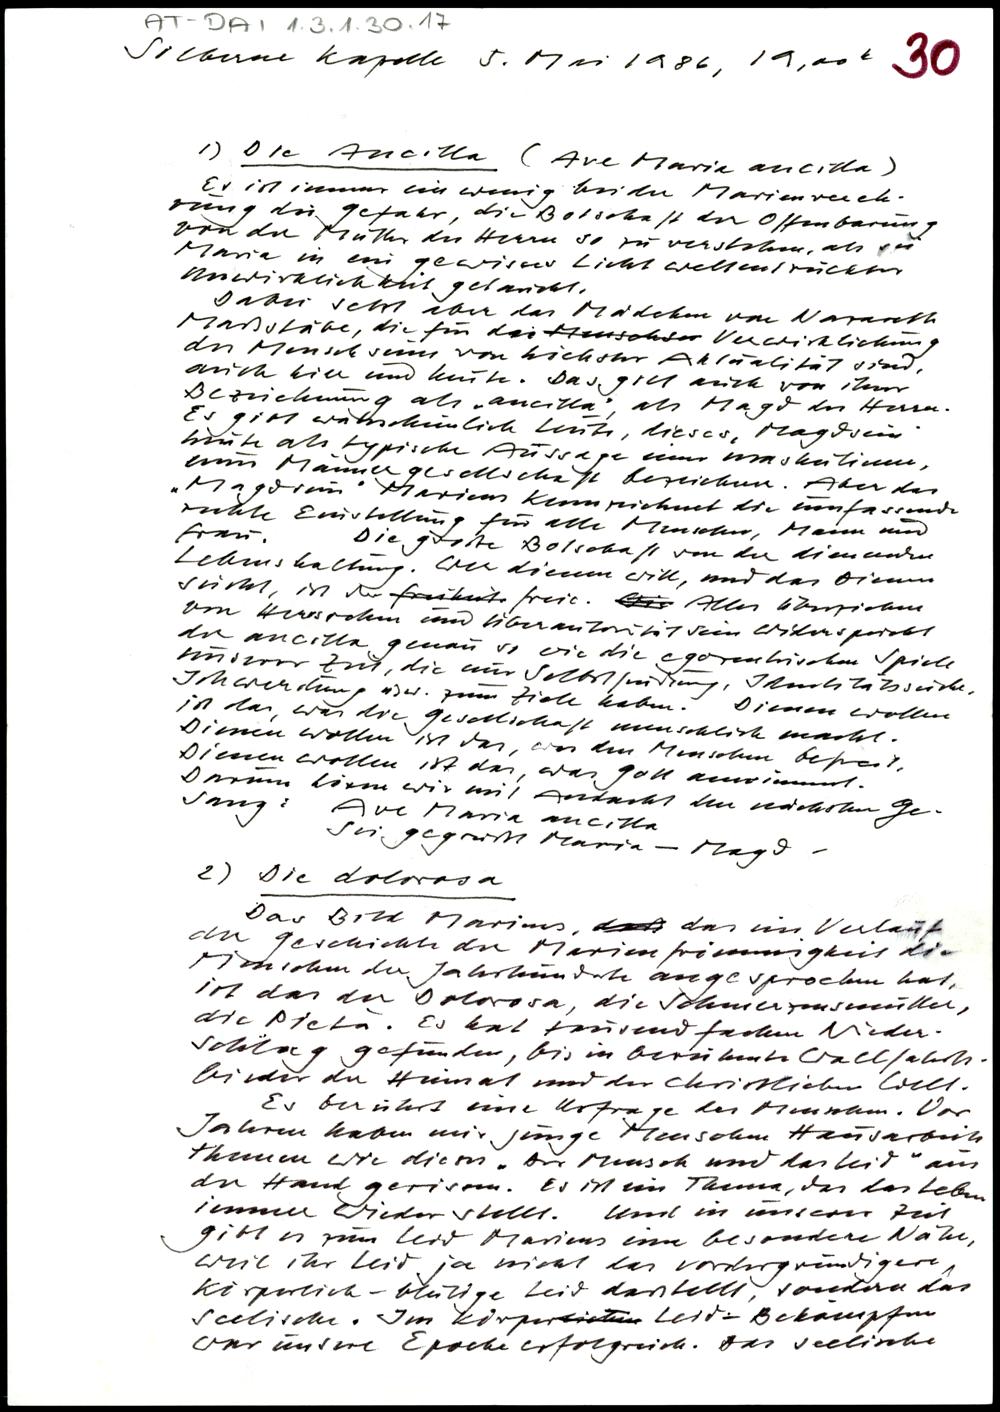 AT-DAI 1.3.1.30.17
Silberne Kapelle 5. Mai 1986, 19,00h
30
1) Die Ancilla (Ave Maria ancilla)
Es ist immer ein wenig bei der Marienvereh-
rung die Gefahr, die Botschaft der Offenbarung
von der Mutter des Herrn so zu verstehen, als sei
Maria in ein gewisses Licht weltentrückter
Unwirklichkeit getaucht.
Dabei setzt aber das Mädchen von Nazareth
Maßstäbe, die für die Menschen Verwirklichung
des Menschseins von höchster Aktualität sind,
auch hier und heute. Das gilt auch von ihrer
Bezeichnung als „ancilla", als Magd des Herrn.
Es gibt wahrscheinlich Leute, dieses „Magdsein"
heute als typische Aussage einer maskulinen,
einer Männergesellschaft bezeichnen. Aber das
„Magdsein" Mariens kennzeichnet die umfassende
rechte Einstellung für alle Menschen, Mann und
Frau. Die große Botschaft von der dienenden
Lebenshaltung. Wer dienen will, und das Dienen
sucht, ist der freiheits freie. Die Alles überziehen
von Herrschen und Überautoritätsein widerspricht
der ancilla genau so wie die egozentrischen Spiele
unserer Zeit, die nur Selbstfindung, Identitätssuche,
Ichwerdung usw. zum Ziele haben. Dienen wollen
ist das, was die Gesellschaft menschlich macht.
Dienen wollen ist das, was den Menschen befreit.
Dienen wollen ist das, was Gott annimmt.
Darum hören wir mit Andacht den nächsten Ge-
sang: Ave Maria ancilla
Sei gegrüßt Maria – Magd –
2) Die dolorosa
Das Bild Mariens, das das im Verlauf
der Geschichte der Marienfrömmigkeit die
Menschen der Jahrhunderte angesprochen hat,
ist das der Dolorosa, die Schmerzensmutter,
die Pietà. Es hat tausendfachen Nieder-
schlag gefunden, bis in berühmte Wallfahrts-
bilder der Heimat und der christlichen Welt.
Es berührt eine Urfrage des Menschen. Vor
Jahren haben mir junge Menschen Hausarbeits
themen wie dieses „Der Mensch und das Leid" aus
der Hand gerissen. Es ist ein Thema, das das Leben
immer wieder stellt. Und in unserer Zeit
gibt es zum Leid Mariens eine besondere Nähe,
weil ihr Leid ja nicht das vordergründigere,
körperlich-blutige Leid darstellt, sondern das
seelische. Im körperlichen Leid-Bekämpfen
war unsere Epoche erfolgreich. Das seelische